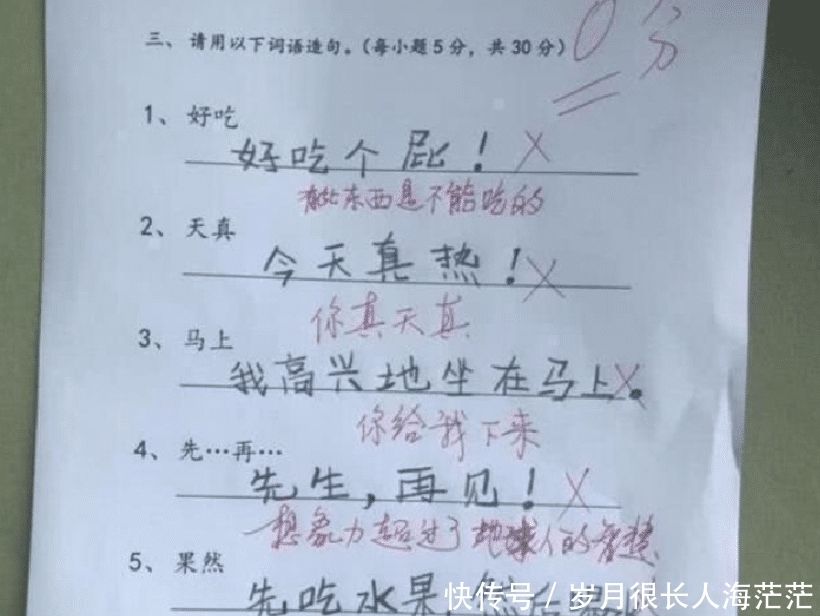 三、请用以下词语造句。(每小题5分，共30分)
0分
1、好吃
好吃个屁！
有些东西是不能吃的
2、天真
今天真热！
你真天真
3、马上
我高兴地坐在马上。
你给我下来
4、先…再…
先生，再见！
想象力超过了地球人的智慧
5、果然
先吃水果，
快传号 / 岁月很长人海茫茫